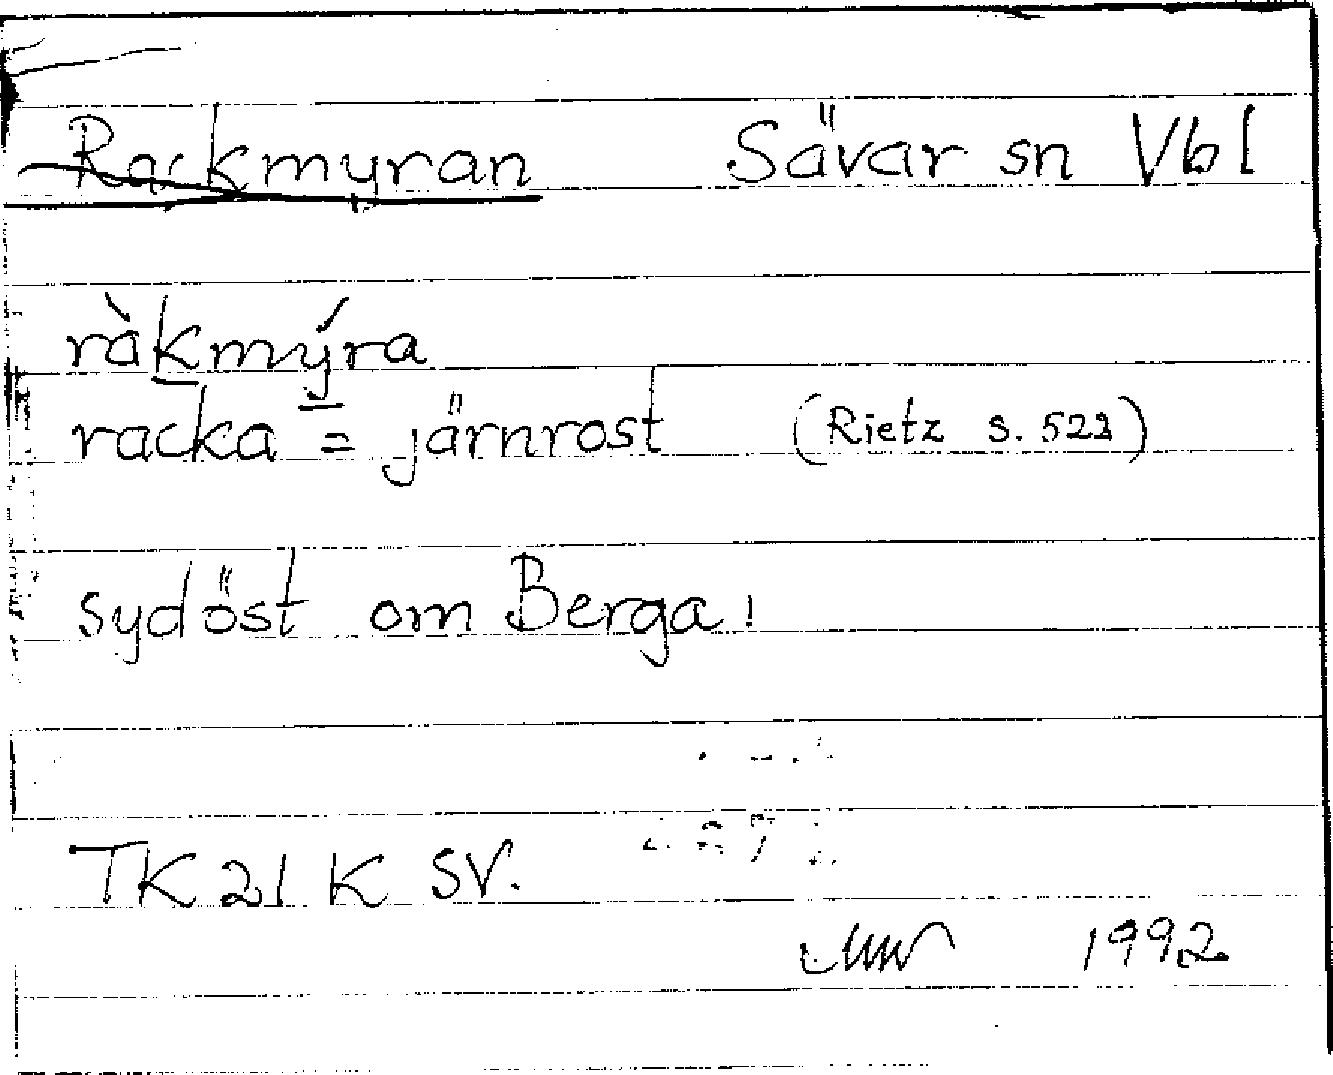 Rackmyran Sävar sn Vbl
ràkmýra
racka = järnrost (Rietz s. 523)
sydöst om Berga!
TK 21 K SV.
1992